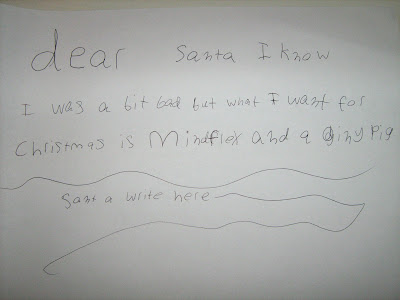 dear Santa I know
I was a bit bad but what I want for
Christmas is Mindflex and a giny Pig
Sant a write here